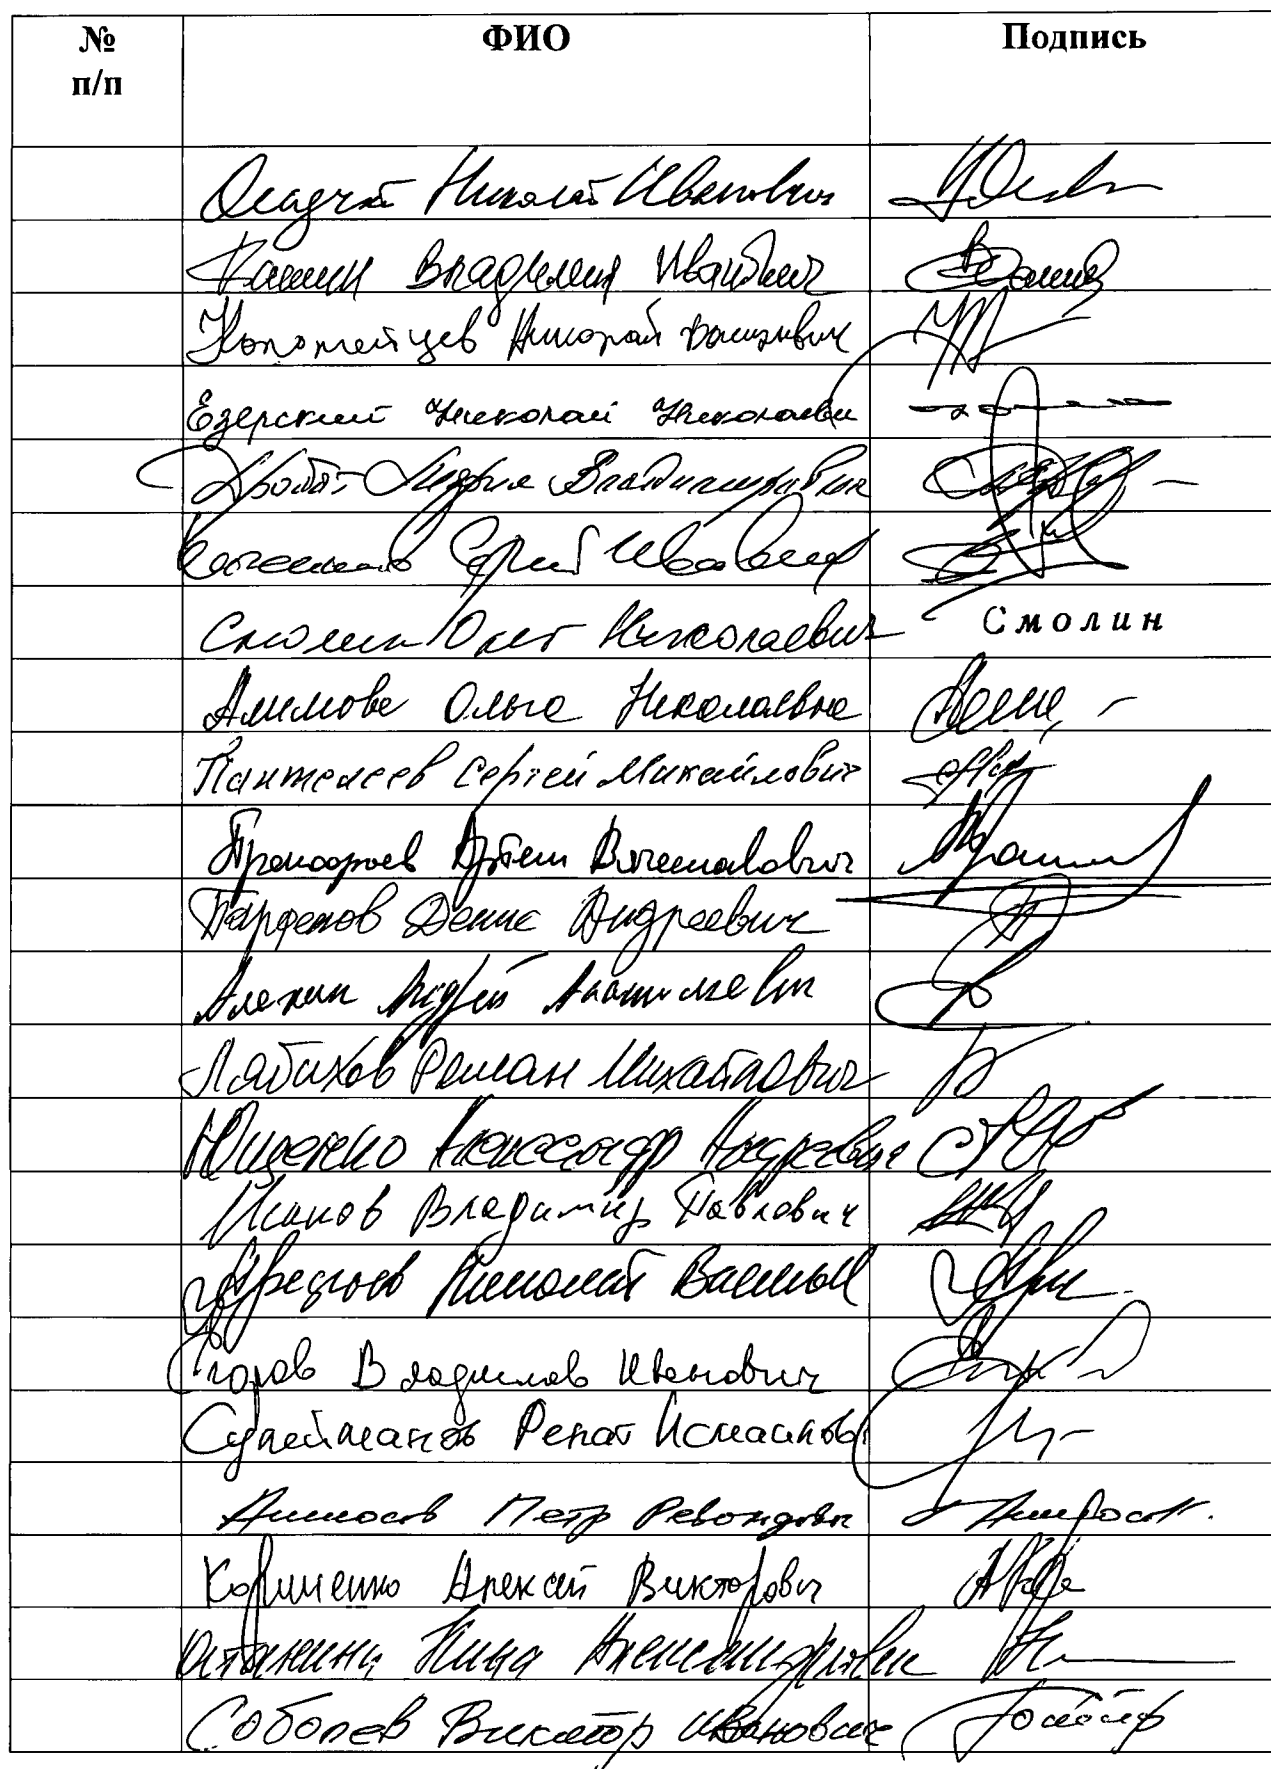 № п/п ФИО Подпись
Осадчий Николай Иванович
Кашин Владимир Иванович
Коломейцев Николай Васильевич
Езерский Николай Николаеви
Дробот Мария Владимировна
Сергей Иванович
Смолин Олег Николаевич Смолин
Алимова Ольга Николаевна
Пантелеев Сергей Михайлович
Прокофьев Артем Вячеславович
Парфенов Денис Андреевич
Алехин Андрей Анатольевич
Лябихов Роман Михайлович
Ющенко Александр Андреевич
Исаков Владимир Павлович
Арефьев Николай Васильев
Егоров Владислав Иванович
Сулейманов Ренат Исмаилов
Аммосов Петр Револьдович
Корниенко Алексей Викторович
Останина Нина Александровна
Соболев Виктор Иванович